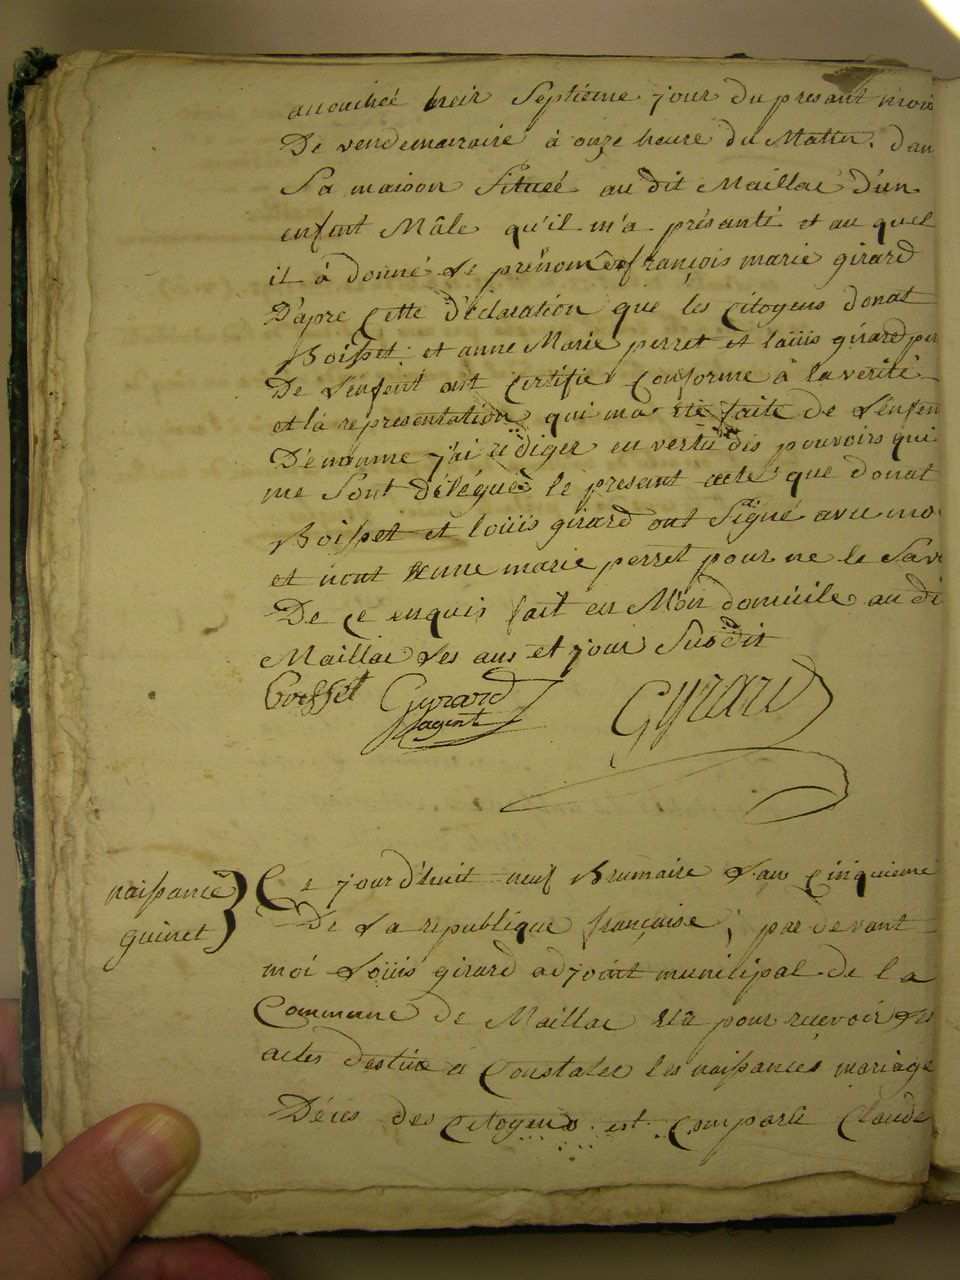 accouchée heir Septiéme jour du presant mois
De vendemairaire à onze heure du Mattin. dan
Sa maison Situéé au dit Maillac d'un
enfent Mâle qu'il m'a présanté et au quel
il à donné Le prénom de françois marie girard
D'apre Cette déclaration que les Citoyens donat
Boisset et anne Marie perret et Loüis girard per
De L'enfent ont Certifié Conforme à la verité
et la représentation qui ma été faite de L'enfen
Dénomme j'ai rédiger en vertu des pouvoirs qui
me Sont délégués le presant acte que donat
Boisset et Loüis girard ont Signé avec mo
et nont Anne marie perret pour ne le Savo
De ce enquis fait en Mon domicile au di
Maillac Les ans et jour Susdit
Boisset Gyrard Gyrard
agent
naissance
guinet
Ce jourd'huit neuf Brumaire L'an Cinquieme
De La republique française, par devant
moi Loüis girard adjoint municipal de la
Commune de Maillac élu pour recevoir Les
actes destiné à Constater les naissances mariage
Déces des Citoyens est Comparu Claude